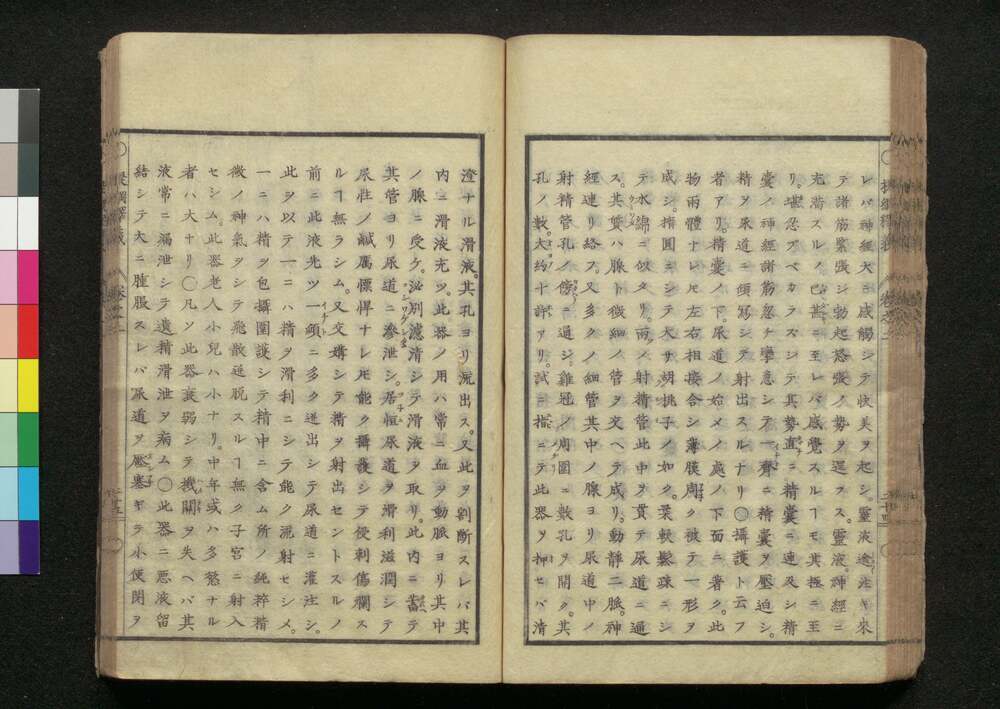 レバ神經大ニ感觸シテ快美ヲ起シ。靈液進注キ來
テ諸筋緊張シ勃起怒張ノ勢ヲ逞フス。靈液。神經ニ
充滿スルノ已甚ニ至レバ感覺スルヿモ其極ニ至
リ。堪忍フベカラスシテ其勢直ニ精囊ニ連及シ精
囊ノ神經諸筋忽チ攣急シテ一齊ニ精囊ヲ壓迫シ。
精ヲ尿道ニ傾寫シテ射出スルナリ〇攝護ト云フ
者アリ。精囊ノ下。尿道ノ始メノ處ノ下面ニ著ク。此
物兩體ナレモ左右相接合シ薄膜周ク被テ一形ヲ
成シ。楕圓ニシテ大サ胡桃子ノ如ク。柔軟鬆疎ニシ
テ水綿ニ似タリ。兩ノ射精管此中ヲ貫テ尿道ニ通
ス。其質ハ腺ト微細ノ管ヲ交ヘテ成リ。動靜二脈。神
經連リ絡フ。又多クノ細管其中ノ腺ヨリ尿道中ノ
射精管孔ノ傍ニ通シ雞冠ノ周圍ニ數孔ヲ開ク。其
孔ノ數。大約十許アリ。試ニ指ニテ此器ヲ押セバ清
澄ナル滑液。其孔ヨリ流出ス。又此ヲ割斷スレバ其
内ニ滑液充ツ。此器ノ用ハ常ニ血ヲ動脈ヨリ其中
ノ腺ニ受ケ。泌別濾清シテ滑液ヲ取リ。此内ニ畜テ
其管ヨリ尿道ニ滲泄シ。居恒尿道ヲ滑利滋潤シテ
尿性ノ鹹厲慓悍ナレモ能ク攝護シテ侵刺傷爛ス
ルヿ無ラシム。又交媾シテ精ヲ射出セントスルノ
前ニ此液先ツ一頓ニ多ク迸出シテ尿道ニ灌注シ。
此ヲ以テ一ニハ精ヲ滑利ニシテ能ク流射セシメ。
一ニハ精ヲ包攝圍護シテ精中ニ含ム所ノ純粹精
微ノ神氣ヲシテ飛散遁脫スルヿ無ク子宮ニ射入
セシム。此器老人小兒ハ小ナリ。中年或ハ多慾ナル
者ハ大ナリ〇凡ソ此器衰弱シテ機關ヲ失ヘバ其
液常ニ漏泄シテ遺精滑泄ヲ病ム〇此器ニ惡液留
結シテ大ニ腫脹スレバ尿道ヲ壓塞ギテ小便閉ヲ